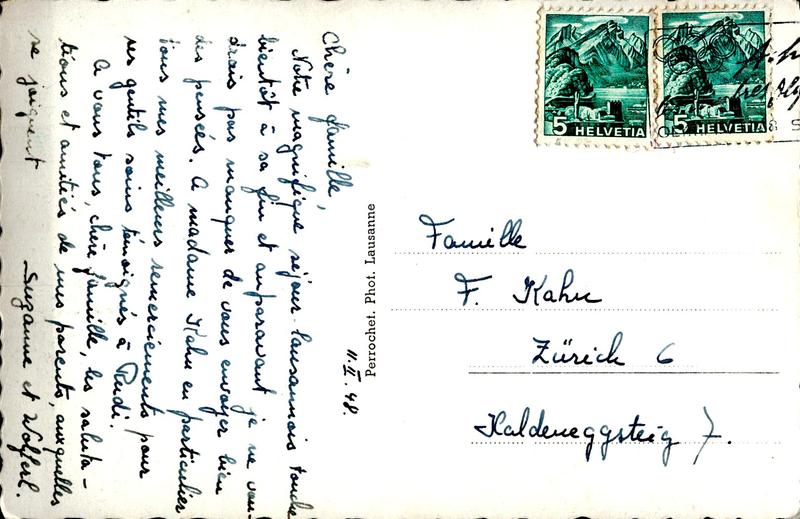 Chère famille,
Notre magnifique séjour lausannois touche
bientôt à sa fin et auparavant je ne vou-
drais pas manquer de vous envoyer bien
des pensées. A madame Kahn en particulier
tous mes meilleurs remerciements pour
ses gentils soins témoignés à Rudi.
A vous tous, chère famille, les saluta-
tions et amitiés de mes parents, auxquelles
se joignent
Suzanne et Wolferl.
11.II.48.
Perrochet. Phot. Lausanne
5 HELVETIA
5 HELVETIA
Famille
F. Kahn
Zürich 6
Haldeneggsteig 7.